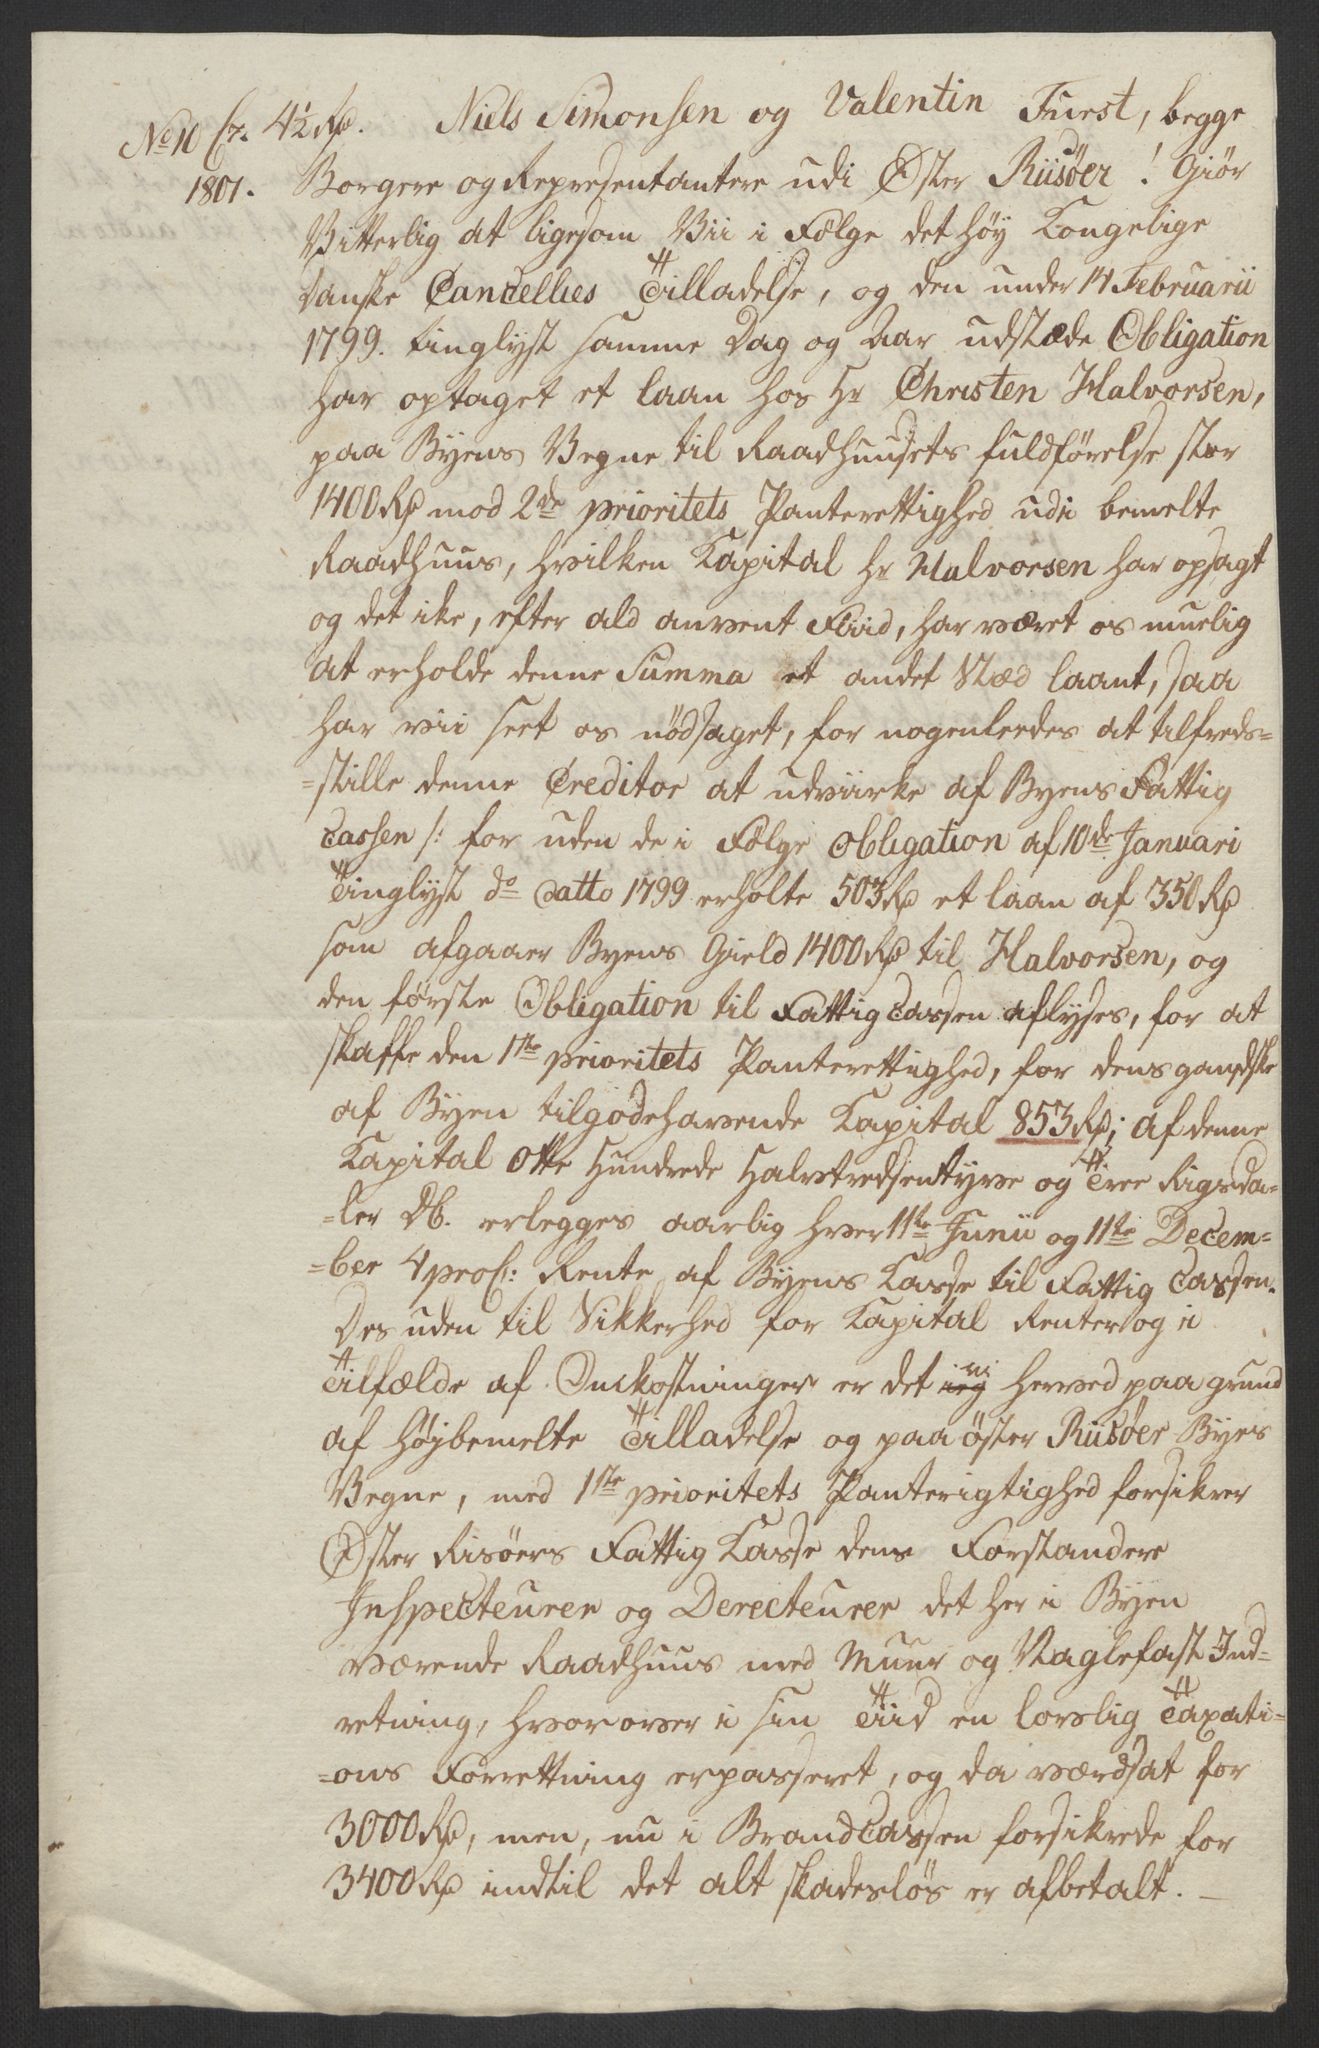 No 10 Cz. 4½ Rd. Niels Simonsen og Valentin Furst, begge
1801. Borgere og Representantere udi Øster Riisöer! Giör
Vitterlig at ligesom Vii i Fölge det höy Kongelige
danske Cancellies Tilladelse, og den under 14 Februarii
1799. tinglyst samme Dag og Aar udstæde Obligation
har optaget et laan hos Hr Christen Halvorsen,
paa Byens Vegne til Raadhuusets fuldförelse stor
1400 Rd mod 2de prioritets Panterettighed udi bemelte
Raadhuus, hvilken Kapital hr Halvorsen har opsagt
og det ike, efter ald anvent Fliid, har været os muelig
at erholde denne Summa et andet Stæd laant, saa
har vii seet os nödsaget, for nogenleedes at tilfreds=
=stille denne Creditor at udviirke af Byens Fattig
Cassen /: for uden de i Fölge Obligation af 10de Januari
Tinglyst do datto 1799 erholte 503 Rd et laan af 350 Rd
som afgaaer Byens Gield 1400 Rd til Halvorsen, og
den første Obligation til Fattig Cassen aflyses, for at
skaffe den 1ste prioritets Panterettighed, for dens gandske
af Byen tilgodehavende Kapital 853 Rd; af denne
Kapital Otte Hundrede Halvtredsentyve og Tree Rigsda=
=ler DC. erlegges aarlig hver 11te Junii og 11te Decem=
=ber 4 proC: Rente af Byens Kasse til Fattig Cassen.
Des uden til Sikkerhed for Kapital Renter og i
Tilfælde af Omkostninger er det ieg vi herved paa grund
af högbemelte Tilladelse og paa öster Riisöer Byes
Vegne, med 1ste prioritets Panterigtighed forsikrer
Øster Risöers Fattig Kasse dens Forstandere
Inspecteurer og Derecteurer det her i Byen
værende Raadhuus med Muur og Naglefast Ind=
retning, hvorover i sin Tiid en lovlig Taxati=
=ons Forrettning er passeret, og da værdsat for
3000 Rd, men, nu i Brand Cassen forsikrede for
3400 Rd indtil det alt skadeslös er afbetalt. —